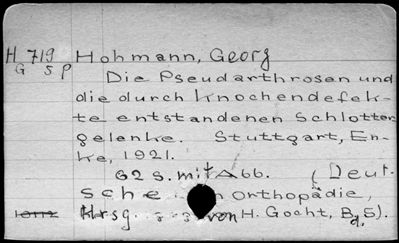 H 719 Hohmann, Georg
G 5 P
Die Pseudarthrosen und
die durch Knochendefek-
te entstandenen Schlotter
gelenke. Stuttgart, En-
ke, 1921.
62 S. mit Abb. (Deut.
sche Orthopädie,
Hrsg. von H. Gocht, Bd. 5).